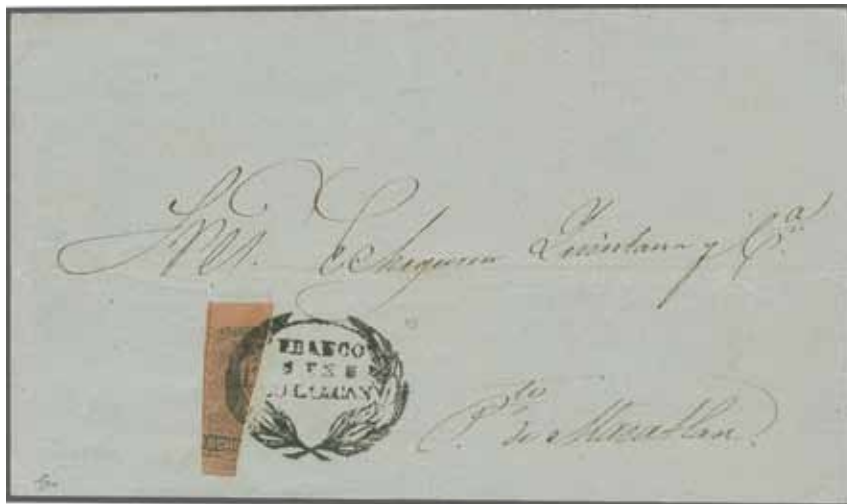 Sres. Echeguren Quintana y Cª
FRANCO
EN E
CULIACAN
Pto
de Mazatlan.